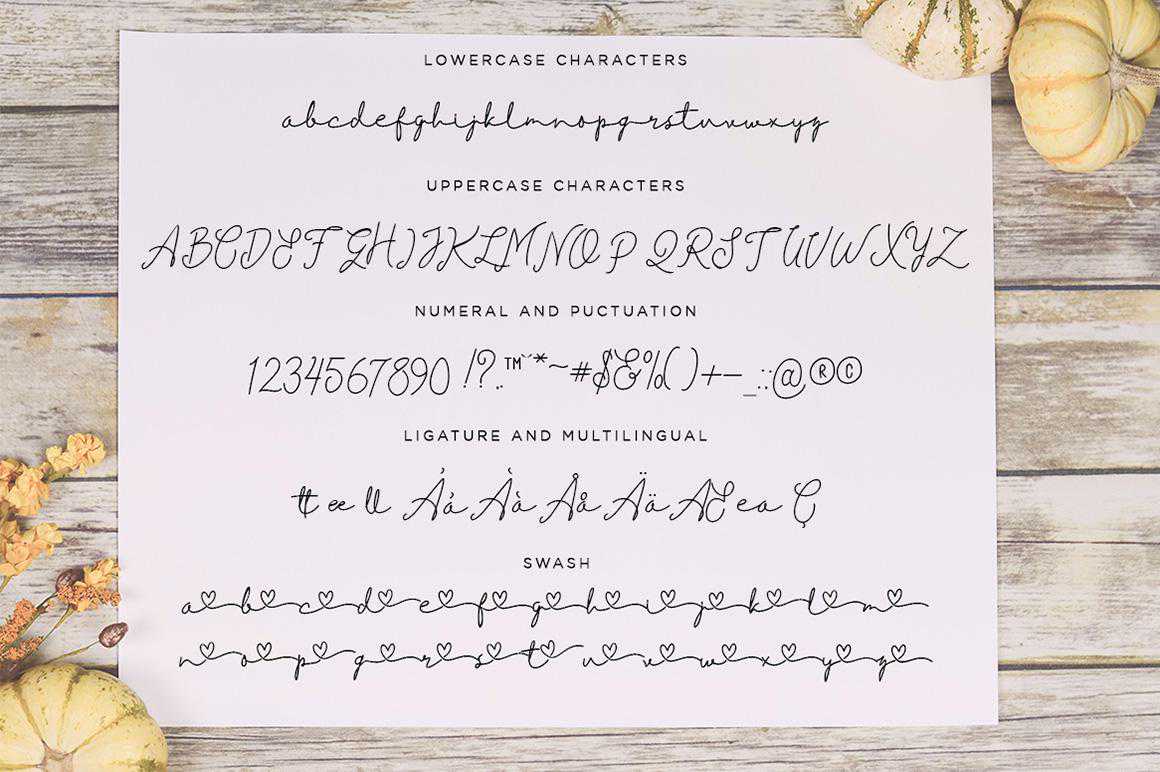 LOWERCASE CHARACTERS
abcdefghijklmnopqrstuvwxyz
UPPERCASE CHARACTERS
ABCDEFGHIJKLMNOPQRSTUVWXYZ
NUMERAL AND PUCTUATION
1234567890 !?.,™`´*~#$&%()+-_:;@®©
LIGATURE AND MULTILINGUAL
tt ee ll Áá Àà Åå Ää AE ea Ç
SWASH
a b c d e f g h i j k l m
n o p q r s t u v w x y z